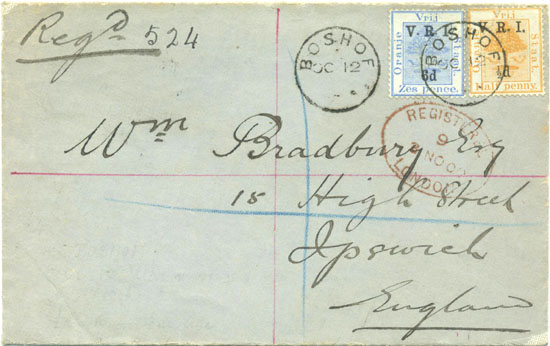 Regd 524
BOSHOF
OC 12
Vrij
Oranje Staat.
V.R.I.
6d
Zes pence.
Vrij
Staat.
V.R.I.
½d
Half penny.
BOSHOF
OC 12
REGISTERED
9
NO 00
LONDON
Wm Bradbury Esq
15 High Street
Ipswich
England